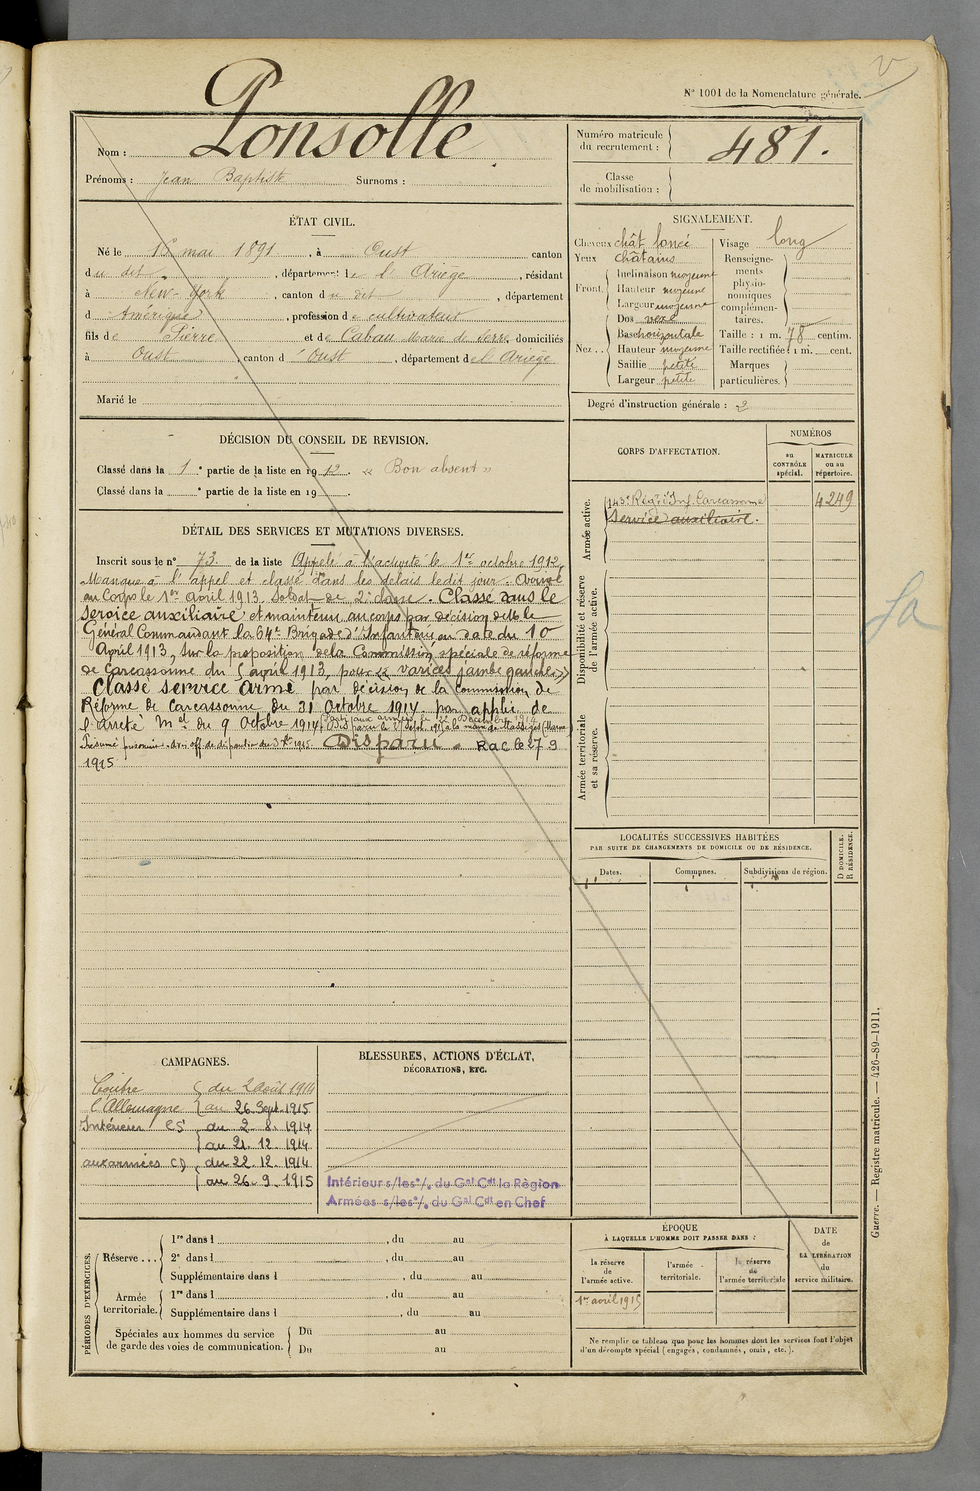 V
N° 1001 de la Nomenclature générale.
Nom : Ponsolle
Prénoms : Jean Baptiste Surnoms :
Numéro matricule du recrutement : 481.
Classe de mobilisation :
ÉTAT CIVIL.
Né le 16 mai 1891, à Oust canton
du dit, département de l'Ariège, résidant
à New-York, canton du dit, département
d Amérique, profession de cultivateur
fils de Pierre et de Cabau Marie de Serre, domiciliés
à Oust, canton d'Oust, département de l'Ariège
Marié le
SIGNALEMENT.
Cheveux chât foncé
Yeux châtains
Front. Inclinaison moyenne
Hauteur moyenne
Largeur moyenne
Nez.. Dos vexe
Base horizontale
Hauteur moyenne
Saillie petite
Largeur petite
Visage long
Renseignements physionomiques complémentaires.
Taille : 1 m. 78 centim.
Taille rectifiée : 1 m. cent.
Marques particulières.
Degré d'instruction générale : 2
DÉCISION DU CONSEIL DE REVISION.
Classé dans la 1e partie de la liste en 1912. « Bon absent »
Classé dans la e partie de la liste en 19 .
CORPS D'AFFECTATION.
NUMÉROS
au CONTRÔLE spécial.
MATRICULE ou au répertoire.
Armée active.
143e Régt d'Inf. Carcassonne 4249
Service auxiliaire.
Disponibilité et réserve de l'armée active.
Armée territoriale et sa réserve.
DÉTAIL DES SERVICES ET MUTATIONS DIVERSES.
Inscrit sous le n° 73. de la liste Appelé à l'activité le 1er octobre 1912,
Manque à l'appel et classé dans les délais ledit jour. Arrivé
au Corps le 1er avril 1913, Soldat de 2e classe. Classé dans le
service auxiliaire et maintenu au corps par décision de Mr le
Général Commandant la 64e Brigade d'Infanterie en date du 10
Avril 1913, sur la proposition de la Commission spéciale de réforme
de Carcassonne du 5 avril 1913, pour « varices jambe gauche »
Classé service armé par décision de la Commission de
Réforme de Carcassonne du 31 Octobre 1914 par applic. de
l'arrêté Mel du 9 Octobre 1914. Parti aux armées le 22 Décembre 1914
Disparu le Sept. 1915 à le Massiges (Marne)
Présumé prisonnier avis off. de disparition du 1915 Disparu. Rac le 27 9
1915
Sa
LOCALITÉS SUCCESSIVES HABITÉES
PAR SUITE DE CHANGEMENTS DE DOMICILE OU DE RÉSIDENCE.
Dates. Communes. Subdivisions de région.
D DOMICILE. R RÉSIDENCE.
CAMPAGNES.
Contre l'Allemagne du 2 août 1914
au 26 Sept. 1915
Intérieur CS du 2. 8. 1914
au 21. 12. 1914
aux armées CD du 22. 12. 1914
au 26. 9. 1915
BLESSURES, ACTIONS D'ÉCLAT,
DÉCORATIONS, ETC.
Intérieur s/les o/. du Gal Cdt la Région
Armées s/les o/. du Gal Cdt en Chef
PÉRIODES D'EXERCICES.
Réserve... 1re dans l , du au
2e dans l , du au
Supplémentaire dans l , du au
Armée territoriale. 1re dans l , du au
Supplémentaire dans l , du au
Spéciales aux hommes du service de garde des voies de communication. Du au
Du au
ÉPOQUE
À LAQUELLE L'HOMME DOIT PASSER DANS :
la réserve de l'armée active.
l'armée territoriale.
la réserve de l'armée territoriale
DATE de LA LIBÉRATION du service militaire.
1er avril 1915
Ne remplir ce tableau que pour les hommes dont les services font l'objet
d'un décompte spécial (engagés, condamnés, omis, etc.).
Guerre. — Registre matricule. — 426-89-1911.